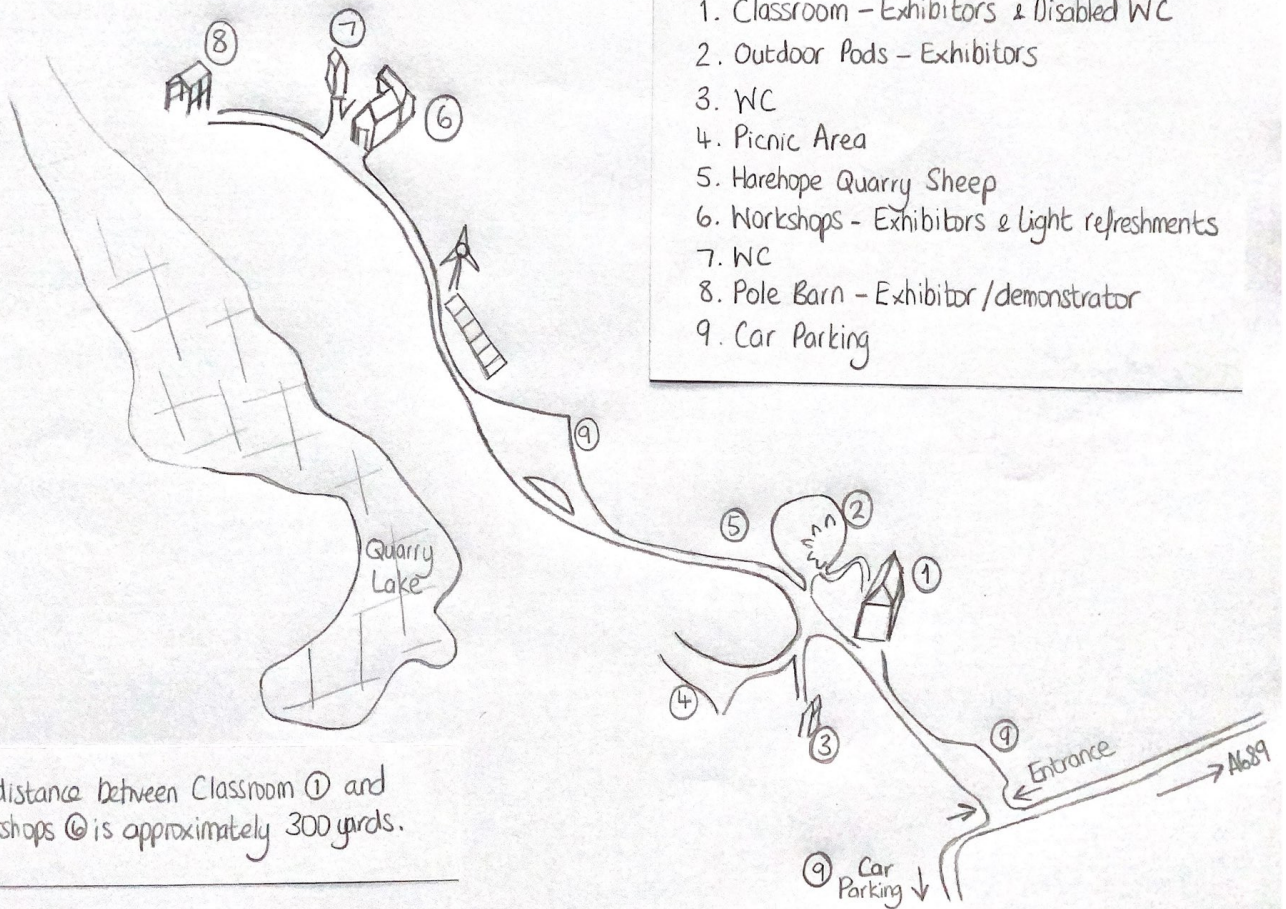 1. Classroom - Exhibitors & Disabled WC
2. Outdoor Pods - Exhibitors
3. WC
4. Picnic Area
5. Harehope Quarry Sheep
6. Workshops - Exhibitors & Light refreshments
7. WC
8. Pole Barn - Exhibitor/demonstrator
9. Car Parking
7
8
6
9
5
2
1
Quarry
Lake
4
3
9
Entrance
A689
distance between Classroom 1 and
shops 6 is approximately 300 yards.
9 Car
Parking